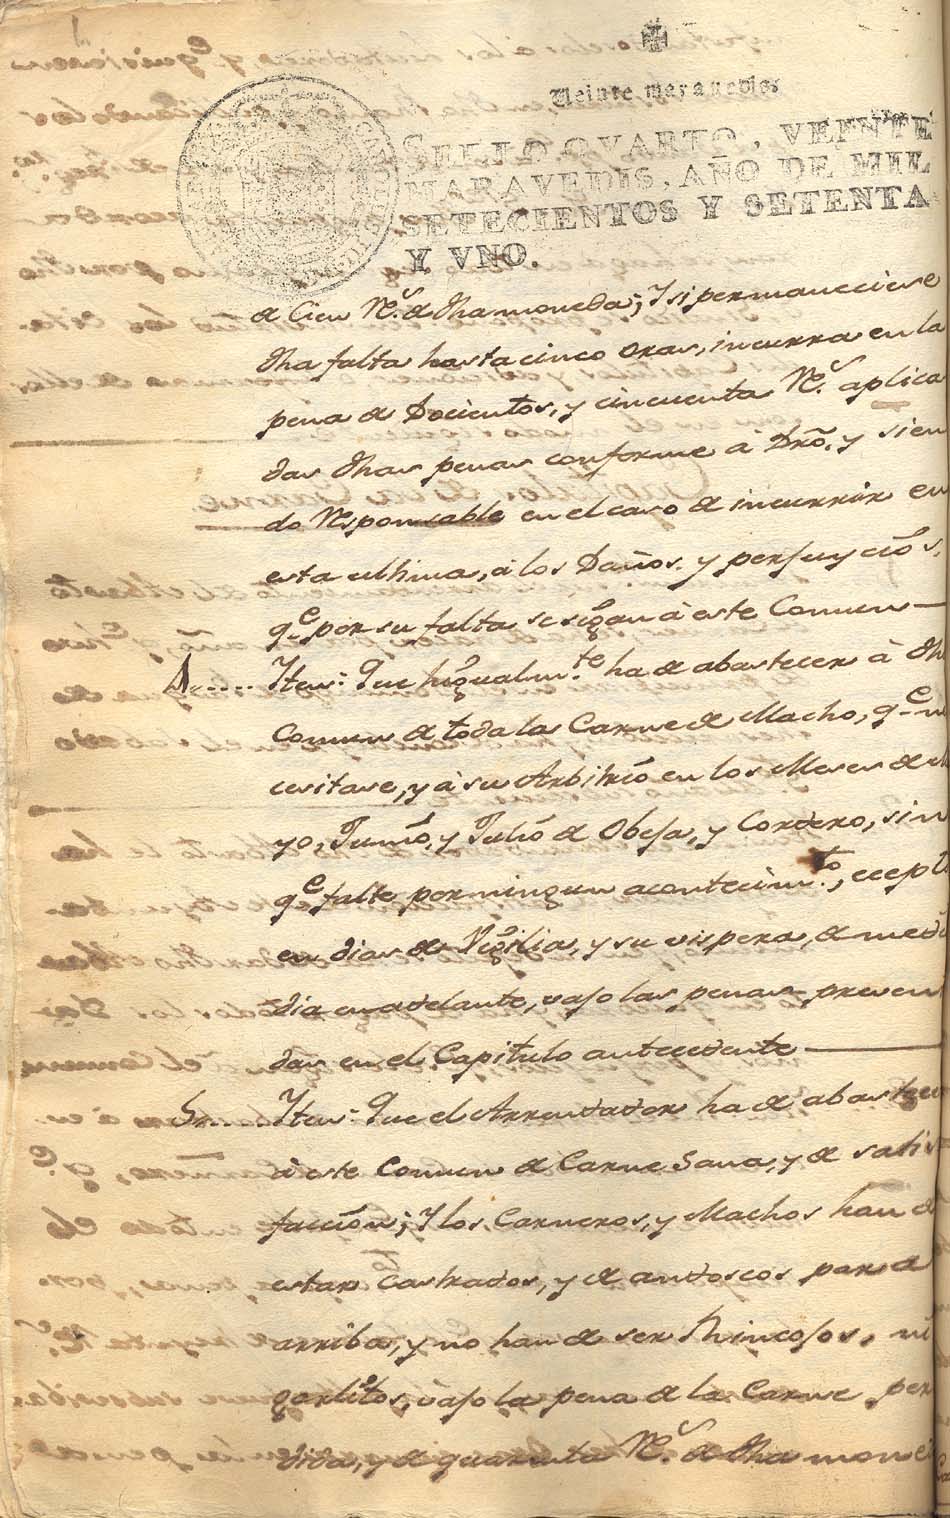 Veinte maravedis.
SELLO QVARTO, VEINTE
MARAVEDIS, AÑO DE MIL
SETECIENTOS Y SETENTA
Y VNO.
de Cien Rs. de dha moneda; Y si permaneciere
dha falta hasta cinco oras, incurra en la
pena de Docientos, y cincuenta Rs. aplica
das dhas penas conforme à Dro. y sien
do responsable en el caso de incurrir en
esta ultima, á los Daños. y perjuycios,
qe. por su falta se sigan à este Comun
4..... Iten: Que higualmte. ha de abastecer à dh
Comun de toda la Carne de Macho, qe. ne
cesitare, y à su Arbitrio en los Meses de Ma
yo, Junio, y Julio de Obeja, y Cordero, sin
qe. falte por ningun acontecimto., ecepto
en dias de Vigilia, y su vispera, de medio
dia en adelante, vajo las penas preven
das en el Capitulo antecedente
5..... Iten: Que el Arrendador ha de abastecer
à este Comun de Carne Sana, y de satis
facción; Y los Carneros, y Machos han de
estar castrados, y de andoscos para
arriba, y no han de ser Rincosos, ni
garlitos, vajo la pena de la Carne per
dida, y de quarenta Rs. de dha mone